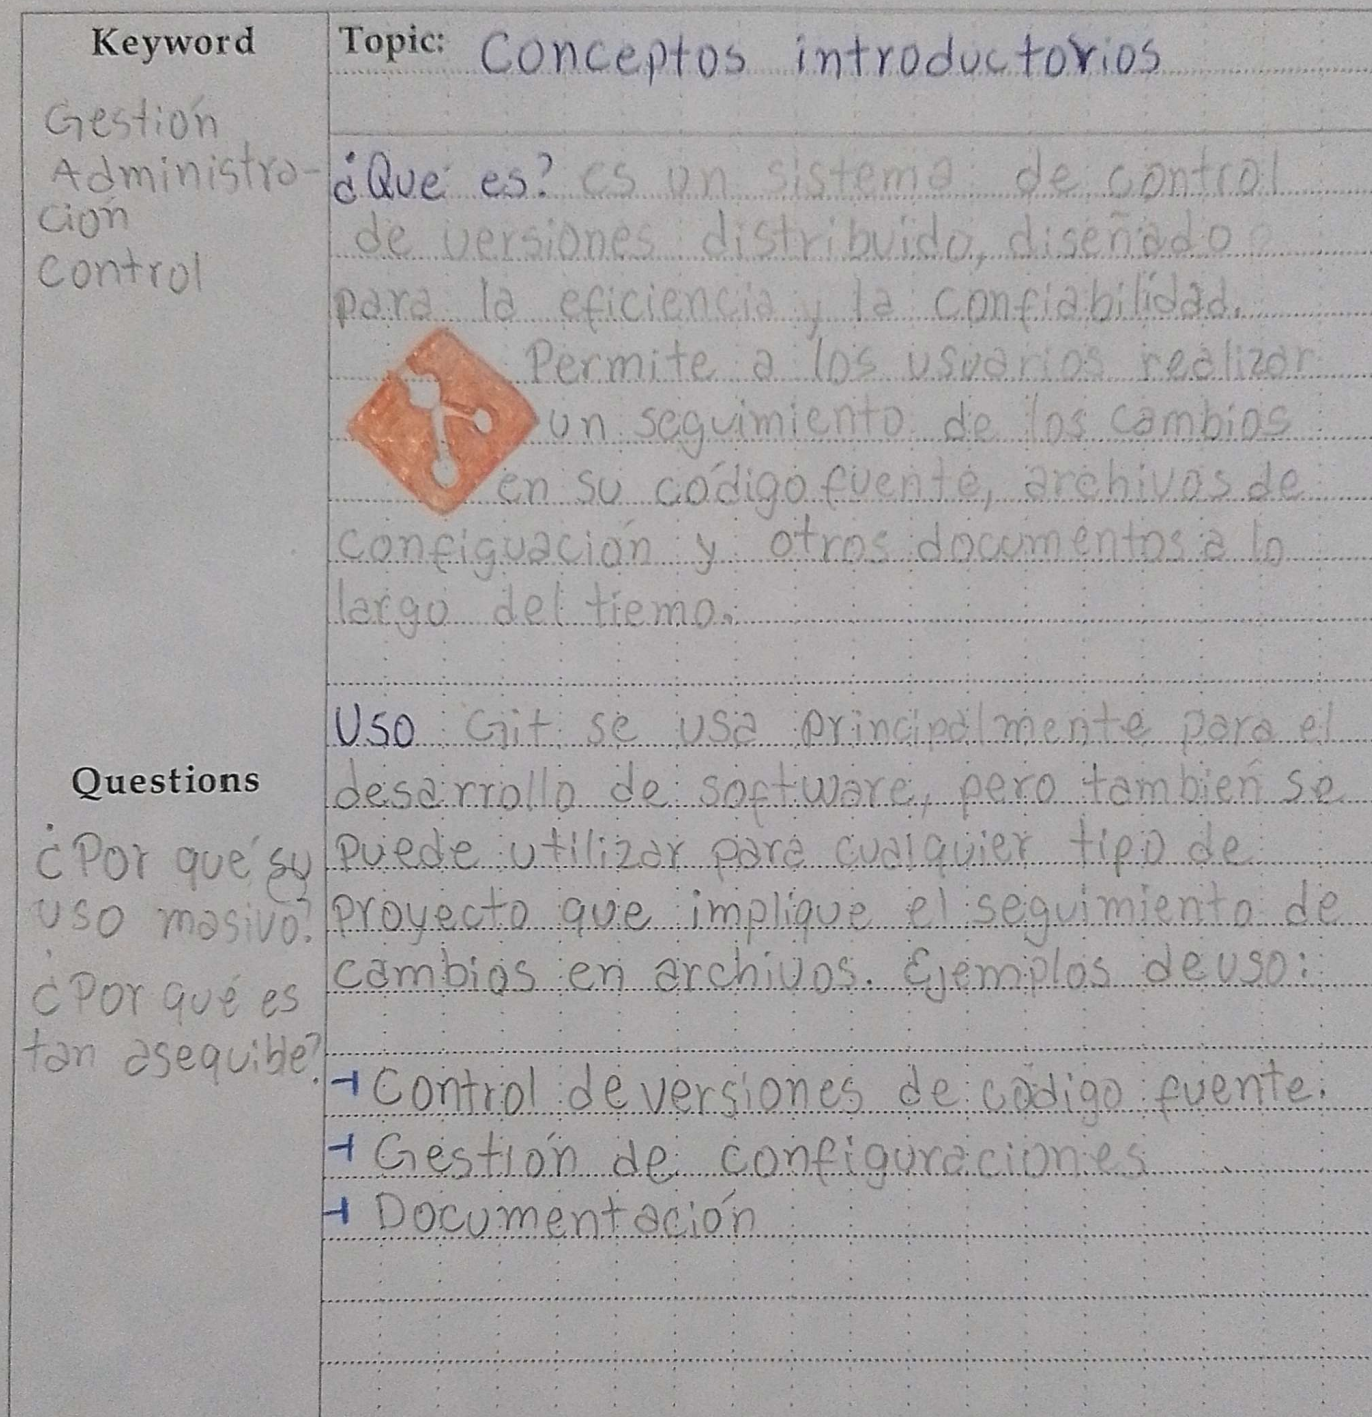 Keyword
Gestión
Administra-
ción
control
Questions
¿Por qué su
uso masivo?
¿Por qué es
tan asequible?
Topic: Conceptos introductorios
¿Qué es? es un sistema de control
de versiones distribuido, diseñado
para la eficiencia y la confiabilidad.
Permite a los usuarios realizar
un seguimiento de los cambios
en su código fuente, archivos de
configuación y otros documentos a lo
largo del tiemo.
Uso Git se usa principalmente para el
desarrollo de software, pero tambien se
puede utilizar para cualquier tipo de
proyecto que implique el seguimiento de
cambios en archivos. Ejemplos de uso:
Control de versiones de código fuente.
Gestión de configuraciones
Documentación